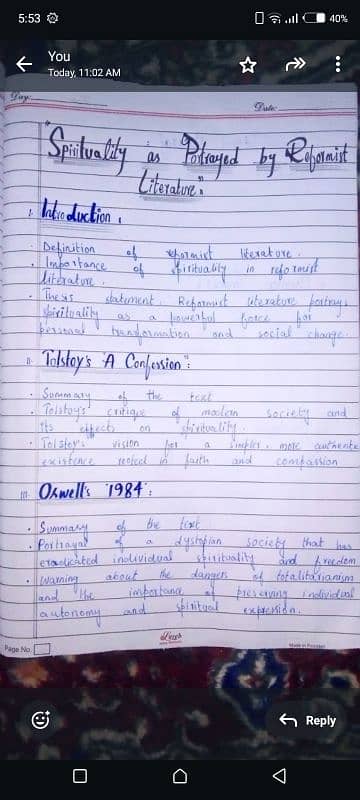 5:53
40%
You
Today, 11:02 AM
Day:
Date:
"Spirituality as Potrayed by Reformist
Literature."
I. Introduction.
. Definition of reformist literature.
. Importance of spirituality in reformist
literature.
. Thesis statement. Reformist literature portrays
spirituality as a powerful force for
personal transformation and social change.
II. Tolstoy's "A Confession":
. Summary of the text
. Tolstoy's critique of modern society and
its effects on spirituality.
. Tolstoy's vision for a simpler, more authentic
existence rooted in faith and compassion
III. Orwell's "1984":
. Summary of the text
. Portrayal of a dystopian society that has
eradicated individual spirituality and freedom
. Warning about the dangers of totalitarianism
and the importance of preserving individual
autonomy and spiritual expression.
Page No.
Made in Pakistan
Reply